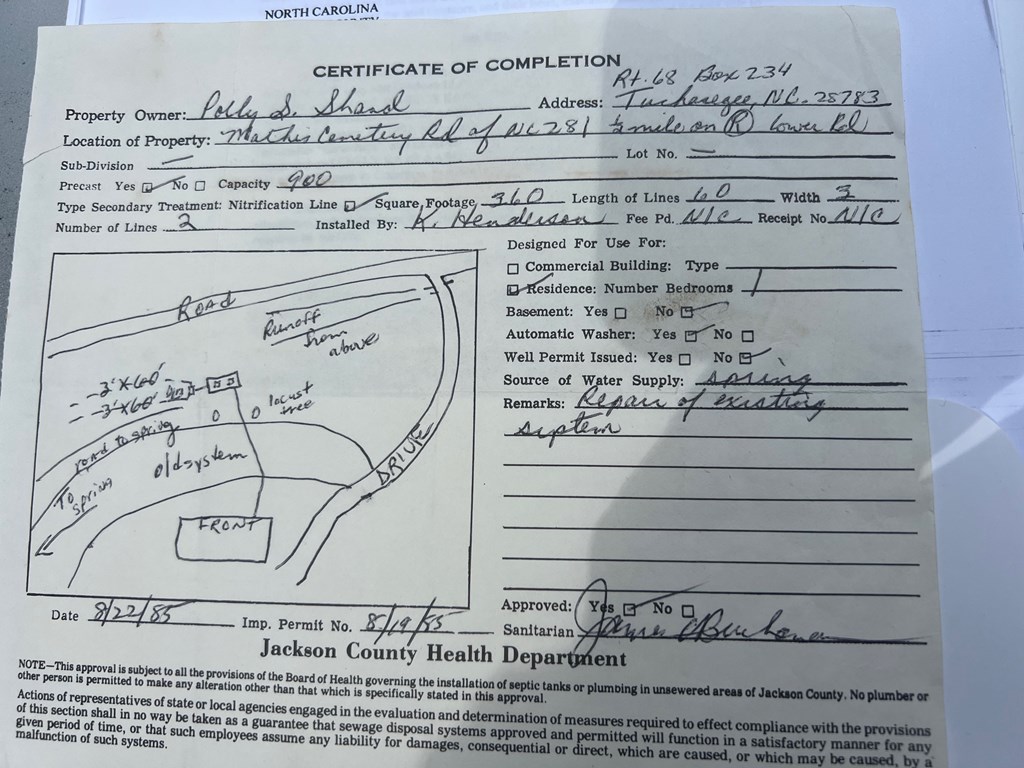 NORTH CAROLINA
CERTIFICATE OF COMPLETION
Rt. 68 Box 234
Property Owner: Polly S. Shand Address: Tuckasegee, NC. 28783
Location of Property: Mathis Cemetery Rd of NC 281 ½ mile on R lower Rd
Sub-Division — Lot No. —
Precast Yes ☑ No ☐ Capacity 900
Type Secondary Treatment: Nitrification Line ☑ Square Footage 360 Length of Lines 60 Width 3
Number of Lines 2 Installed By: K. Henderson Fee Pd. N/C Receipt No N/C
Designed For Use For:
☐ Commercial Building: Type
☑ Residence: Number Bedrooms 1
Basement: Yes ☐ No ☑
Automatic Washer: Yes ☑ No ☐
Well Permit Issued: Yes ☐ No ☑
Source of Water Supply: spring
Remarks: Repair of existing
septem
ROAD
Runoff
from
above
3'X60'
3'X60'
locust
tree
road to spring
old system
To
spring
DRIVE
FRONT
Approved: Yes ☑ No ☐
Date 8/22/85 Imp. Permit No. 8/19/85 Sanitarian James C Buchanan
Jackson County Health Department
NOTE—This approval is subject to all the provisions of the Board of Health governing the installation of septic tanks or plumbing in unsewered areas of Jackson County. No plumber or
other person is permitted to make any alteration other than that which is specifically stated in this approval.
Actions of representatives of state or local agencies engaged in the evaluation and determination of measures required to effect compliance with the provisions
of this section shall in no way be taken as a guarantee that sewage disposal systems approved and permitted will function in a satisfactory manner for any
given period of time, or that such employees assume any liability for damages, consequential or direct, which are caused, or which may be caused, by a
malfunction of such systems.